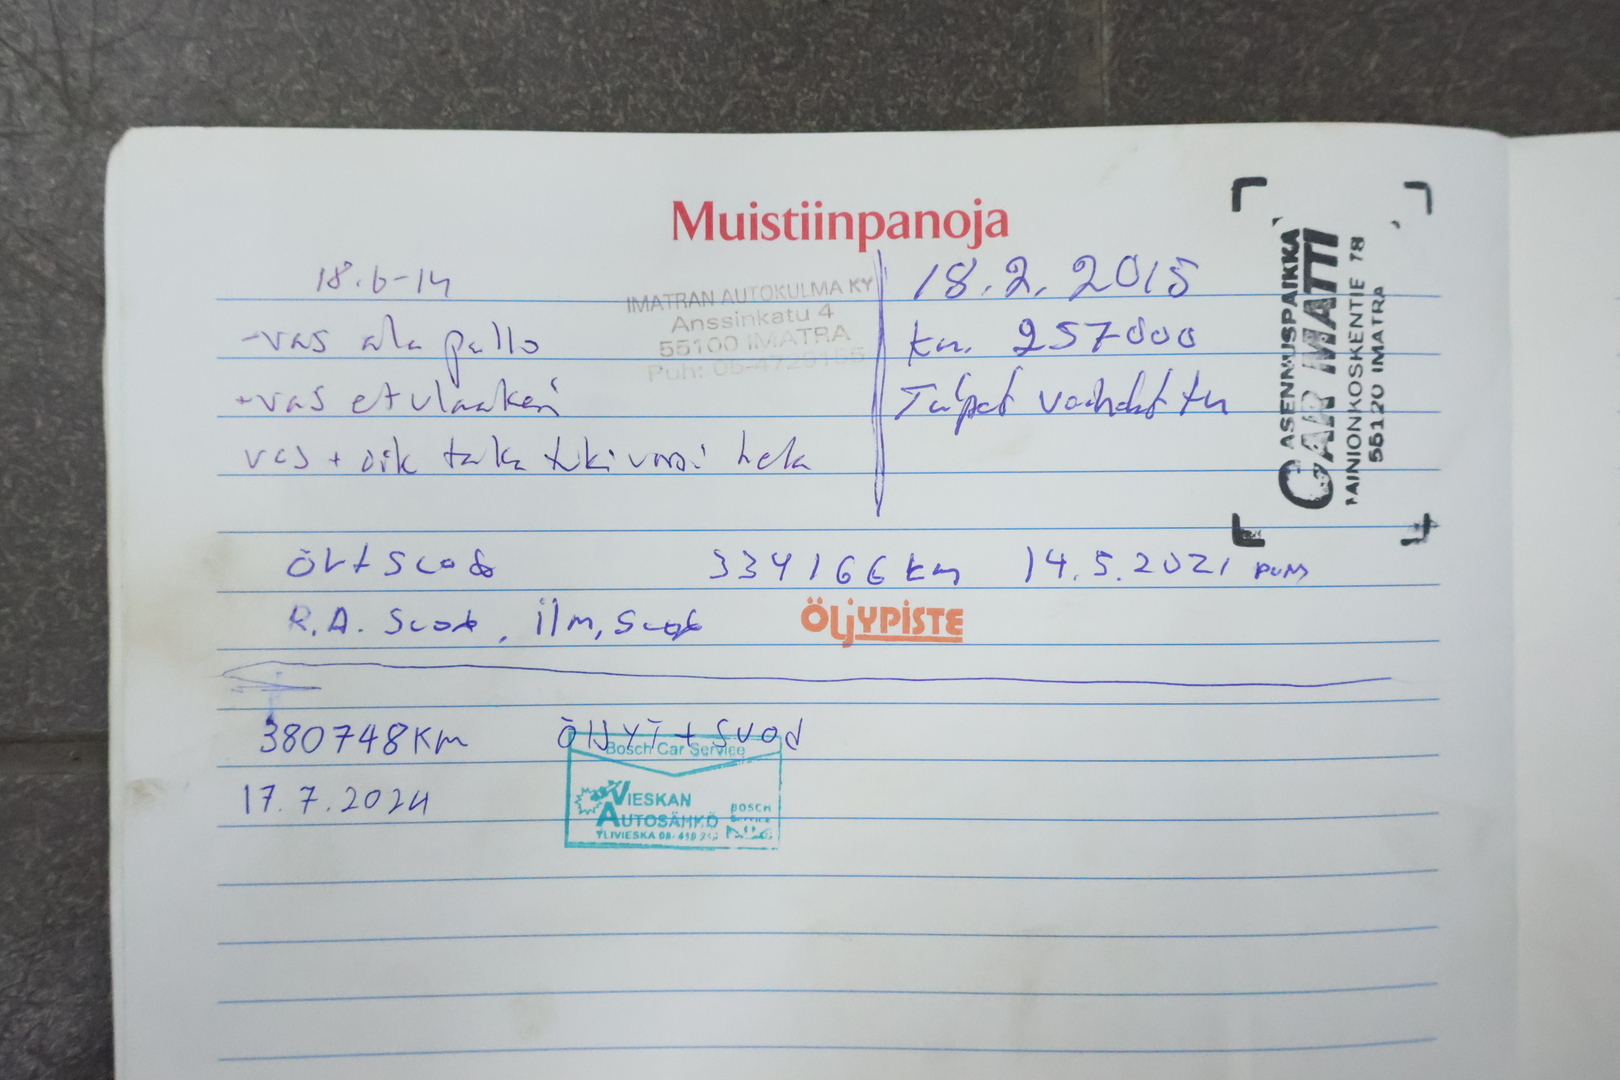 Muistiinpanoja
18.6-14
-vas ala pallo
-vas etulaakeri
vas + oik taka tukivarsi hela
IMATRAN AUTOKULMA KY
Anssinkatu 4
55100 IMATRA
Puh: 05-4729165
18.2.2015
km. 257000
Tulpat vaihdettu
ASENNUSPAIKKA
CAR MATTI
AINIONKOSKENTIE 78
55120 IMATRA
334166 km 14.5.2021
R.A. ilm,
ÖLJYPISTE
380748 Km ÖljyT + SUOD
17.7.2024
Bosch Car Service
VIESKAN
AUTOSÄHKÖ
BOSCH
YLIVIESKA